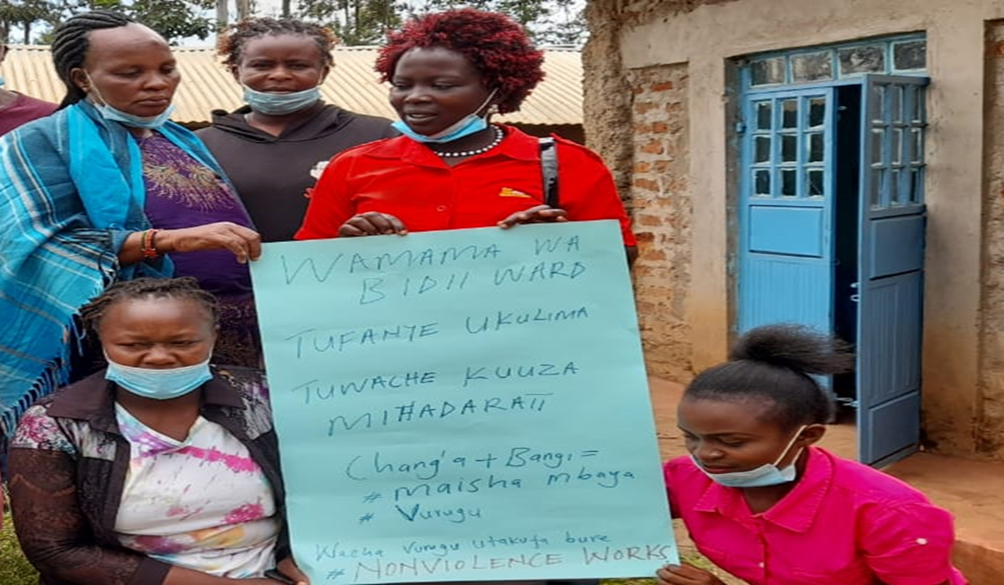 WAMAMA WA
BIDII WARD
TUFANYE UKULIMA
TUWACHE KUUZA
MIHADARATI
Chang'a + Bangi =
# maisha mbaya
# Vurugu
Wacha vurugu utakufa bure
# NONVIOLENCE WORKS